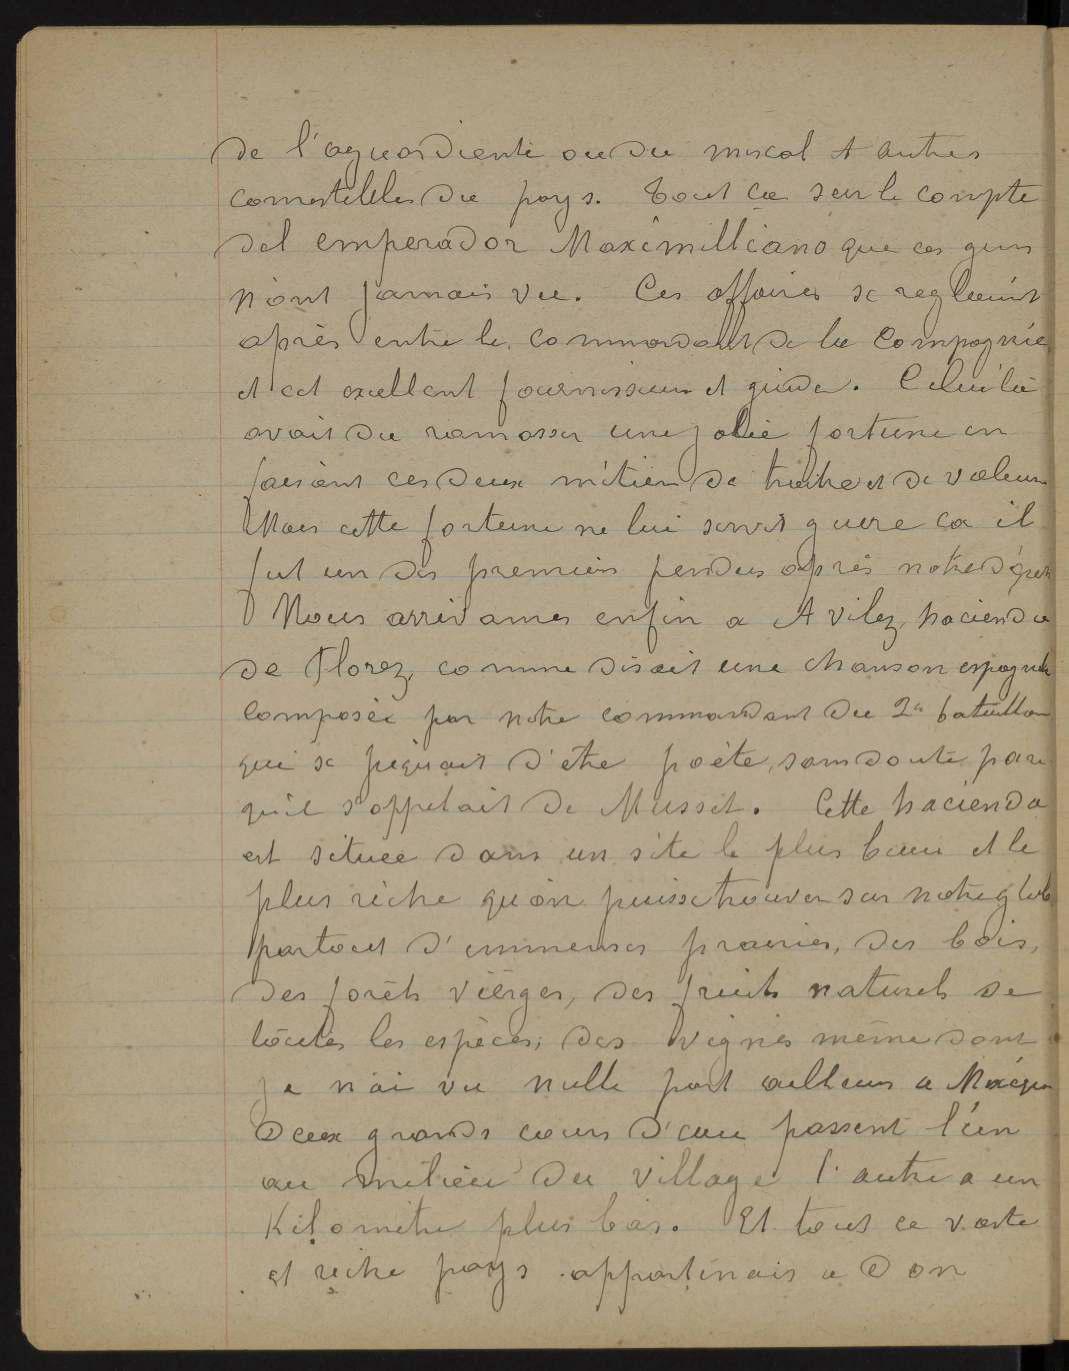 de l'aguardiente ou du mescal et autres
comestibles du pays. Tout ca sur le compte
del emperador Maximilliano que ces gens
n'ont jamais vu. Ces affaires se reglaient
après entre le commandant de la Compagnie
et cet excellent fournisseur et guide. Celui là
avait du ramasser une jolie fortune en
faisant ces deux métiers de traitre et de voleur
Mais cette fortune ne lui servit guere ca il
fut un des premiers pendus après notre départ
Nous arrivames enfin a Avilez, hacienda
de Florez, comme disait une chanson espagnole
composée par notre commandant du 2e bataillon
qui se piquait d'être poète, sans doute parce
qu'il s'appelait de Musset. Cette hacienda
est située dans un site le plus beau et le
plus riche qu'on puisse trouver sur notre globe
partout d'immenses prairies, des bois,
des forêts vierges, des fruits naturels de
toutes les espèces, des vignes même dont
je n'ai vu nulle part ailleurs a Mexique
Deux grands cours d'eau passent l'un
au milieu du village l'autre a un
Kilomètre plus bas. Et tout ce vaste
et riche pays appartenais a Don